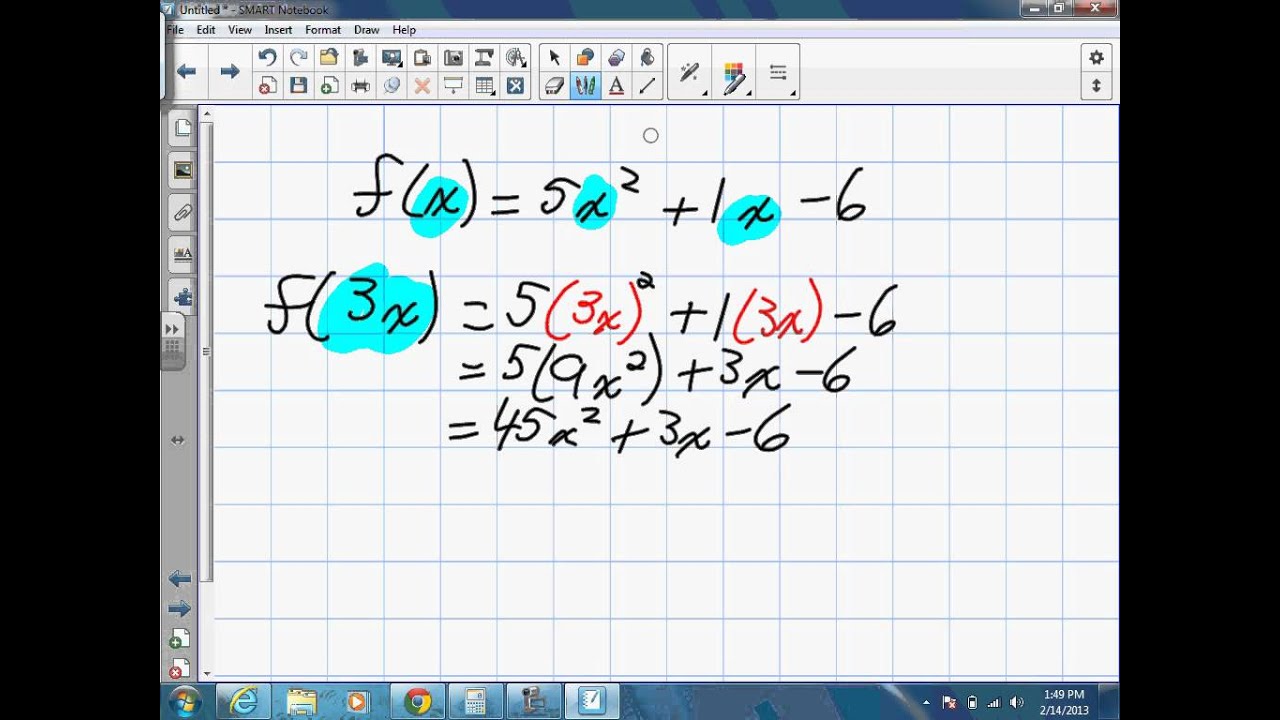 Untitled * - SMART Notebook
File Edit View Insert Format Draw Help
f(x) = 5x² + 1x - 6
f(3x) = 5(3x)² + 1(3x) - 6
= 5(9x²) + 3x - 6
= 45x² + 3x - 6
1:49 PM
2/14/2013